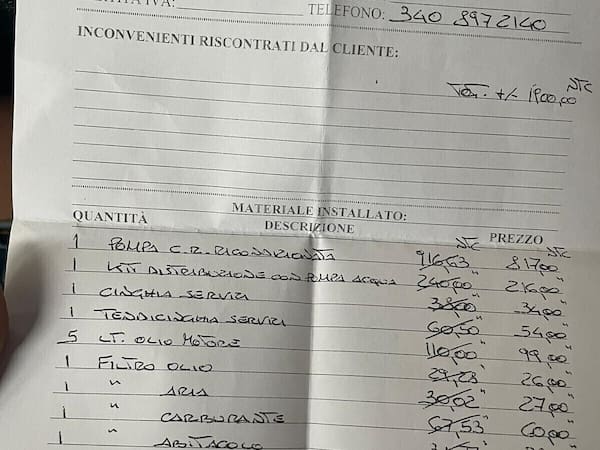 PARTITA IVA: TELEFONO: 340 8972140
INCONVENIENTI RISCONTRATI DAL CLIENTE:
TOT. +/- 1900,00 NTC
MATERIALE INSTALLATO:
QUANTITÀ DESCRIZIONE PREZZO
1 POMPA C.R. RICONDIZIONATA 916,53 NTC 817,00 NTC
1 KIT DISTRIBUZIONE CON POMPA ACQUA 240,00 " 216,00 "
1 CINGHIA SERVIZI 38,00 " 34,00 "
1 TENDICINGHIA SERVIZI 60,50 " 54,00 "
5 LT. OLIO MOTORE 110,00 " 99,00 "
1 FILTRO OLIO 29,28 " 26,00 "
1 " ARIA 30,02 " 27,00 "
1 " CARBURANTE 67,53 " 60,00 "
1 " ABITACOLO